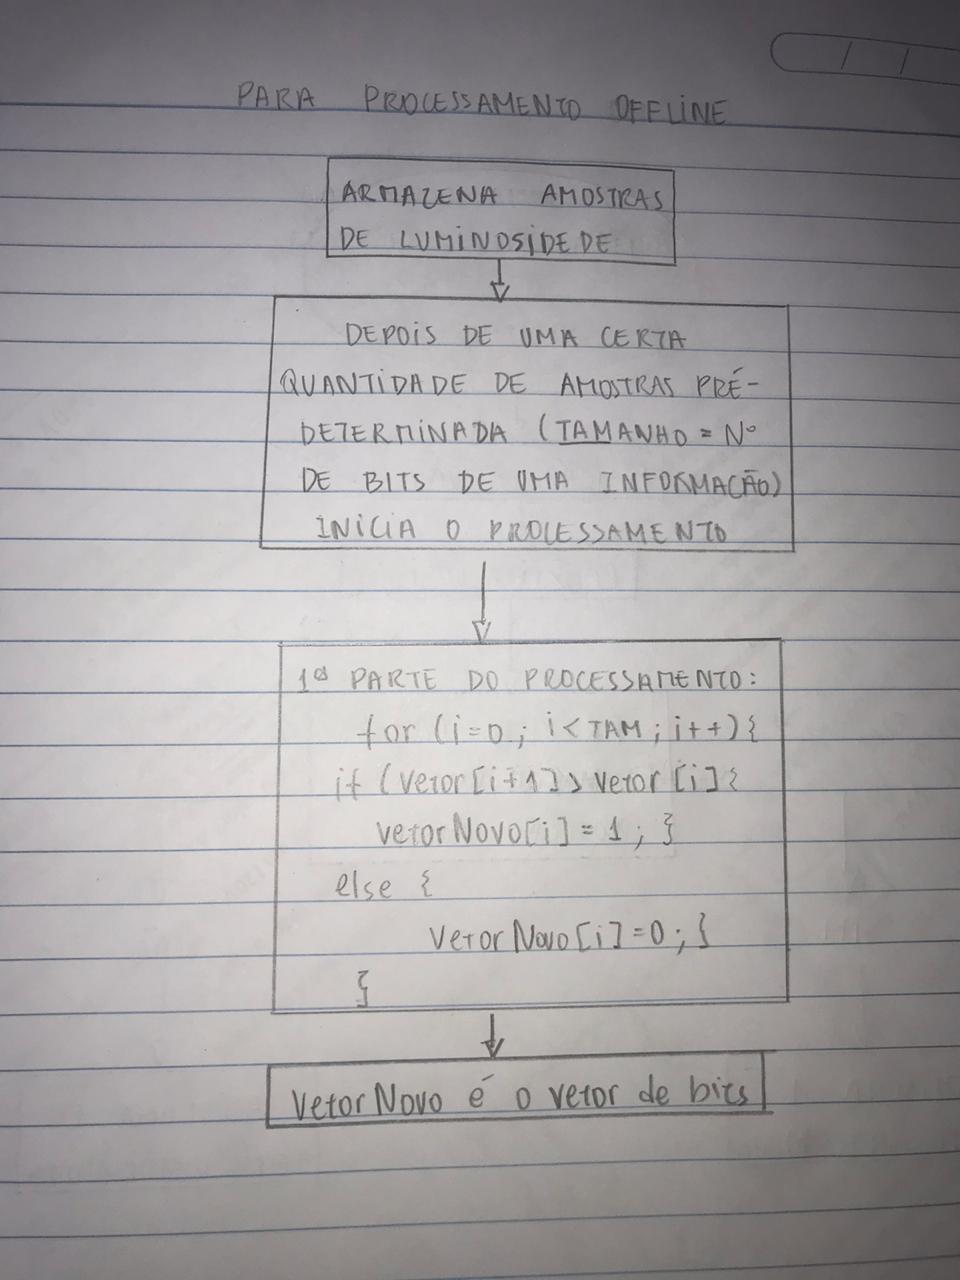 PARA PROCESSAMENTO OFFLINE
ARMAZENA AMOSTRAS
DE LUMINOSIDEDE
DEPOIS DE UMA CERTA
QUANTIDADE DE AMOSTRAS PRÉ-
DETERMINADA (TAMANHO = Nº
DE BITS DE UMA INFORMAÇÃO)
INICIA O PROCESSAMENTO
1ª PARTE DO PROCESSAMENTO:
for (i=0; i<TAM; i++){
if (vetor[i+1]>vetor[i]{
vetorNovo[i]=1; }
else {
vetorNovo[i]=0; }
}
vetorNovo é o vetor de bits